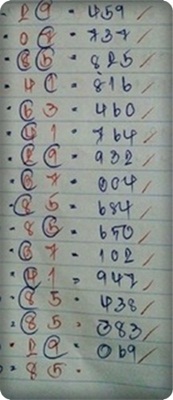 29 = 459
07 = 737
85 = 825
41 = 816
63 = 460
41 = 764
29 = 932
67 = 004
85 = 684
85 = 650
67 = 102
41 = 947
85 = 438
85 = 383
29 = 069
85 =